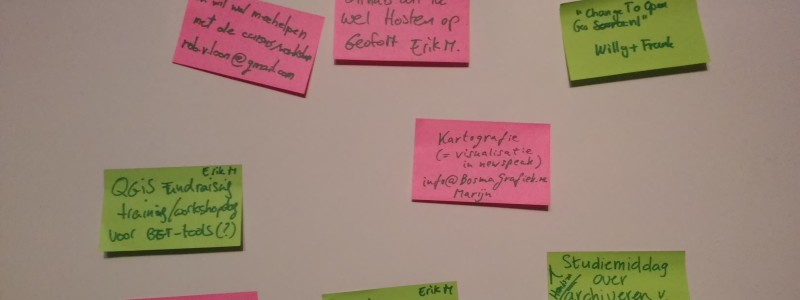 wil wel meehelpen
met de cursus/workshop
wel Hosten op
Geofort Erik M.
"Change To Open
Go
Willy + Frank
Kartografie
(= visualisatie
in newspeak)
info@BosmaGrafiek.nl
Marijn
Erik M
QGIS Fundraising
training/workshopdag
voor BGT-tools(?)
Erik M
Studiemiddag
over
archiveren v